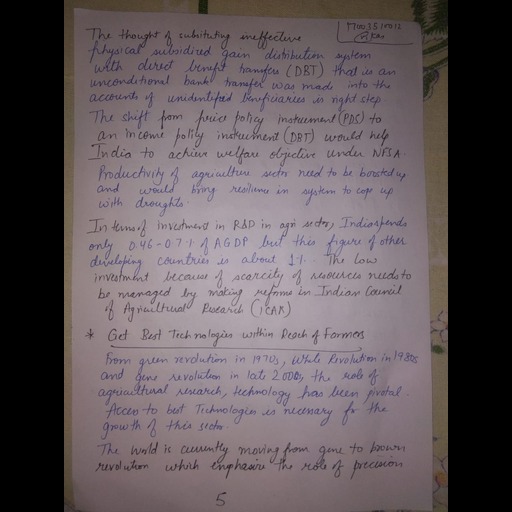 The thought of subsituting ineffective
physical subsidized gain distribution system
with direct benefit transfers (DBT) that is an
unconditional bank transfer was made into the
accounts of unidentified beneficiaries is right step
The shift from price policy instrument (PDS) to
an income policy instrument (DBT) would help
India to achieve welfare objective under NFSA.
Productivity of agriculture sector need to be boosted up
and would bring resilience in system to cope up
with droughts.
In terms of investment in R&D in agri sector, India spends
only 0.46-0.7% of AGDP but this figure of other
developing countries is about 1%. The low
investment because of scarcity of resources needs to
be managed by making reforms in Indian Council
of Agricultural Research (ICAR)
* Get Best Technologies within Reach of Farmers
From green revolution in 1970s, White Revolution in 1980s
and gene revolution in late 2000s, the role of
agricultural research, technology has been pivotal.
Access to best Technologies is necessary for the
growth of this sector.
The world is currently moving from gene to brown
revolution which emphasise the role of precision
5